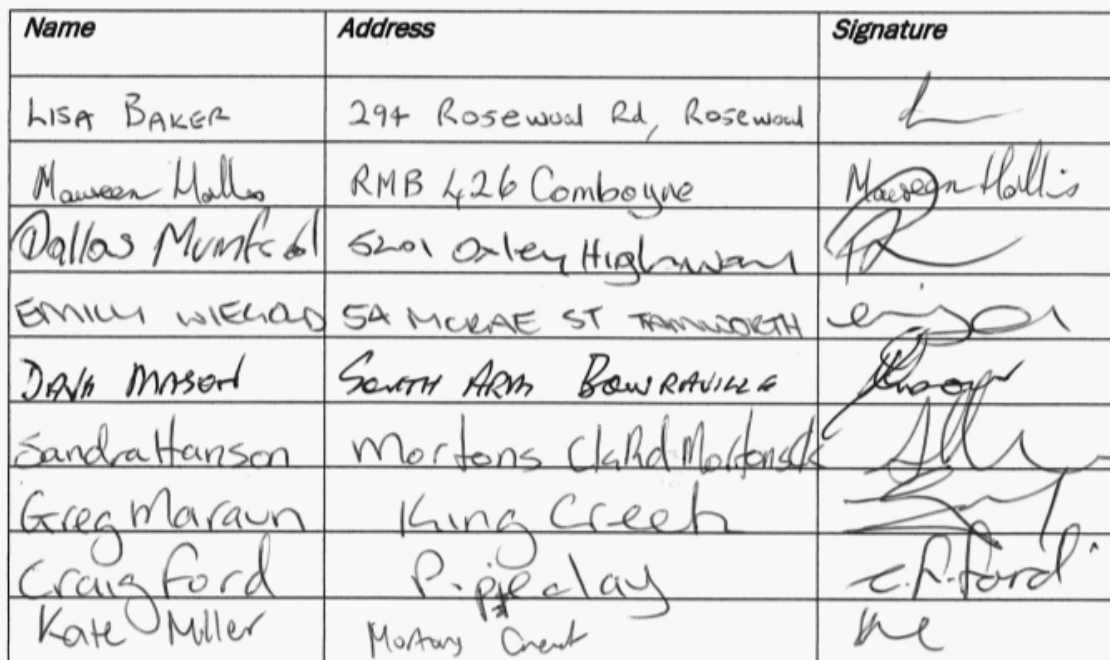 Name Address Signature
LISA BAKER 294 Rosewood Rd, Rosewood
Maureen Hallis RMB 426 Comboyne Maureen Hallis
Dallas 5201 Oxley Highway
EMILY 54 MCRAE ST TAMWORTH
MASON SOUTH ARM BOWRAVILLE
Sandra Hanson Mortons Ck Rd Mortons Ck
Greg Maraun King Creek
Craig Ford P. pipeclay C.A. Ford
Kate Miller Mortons